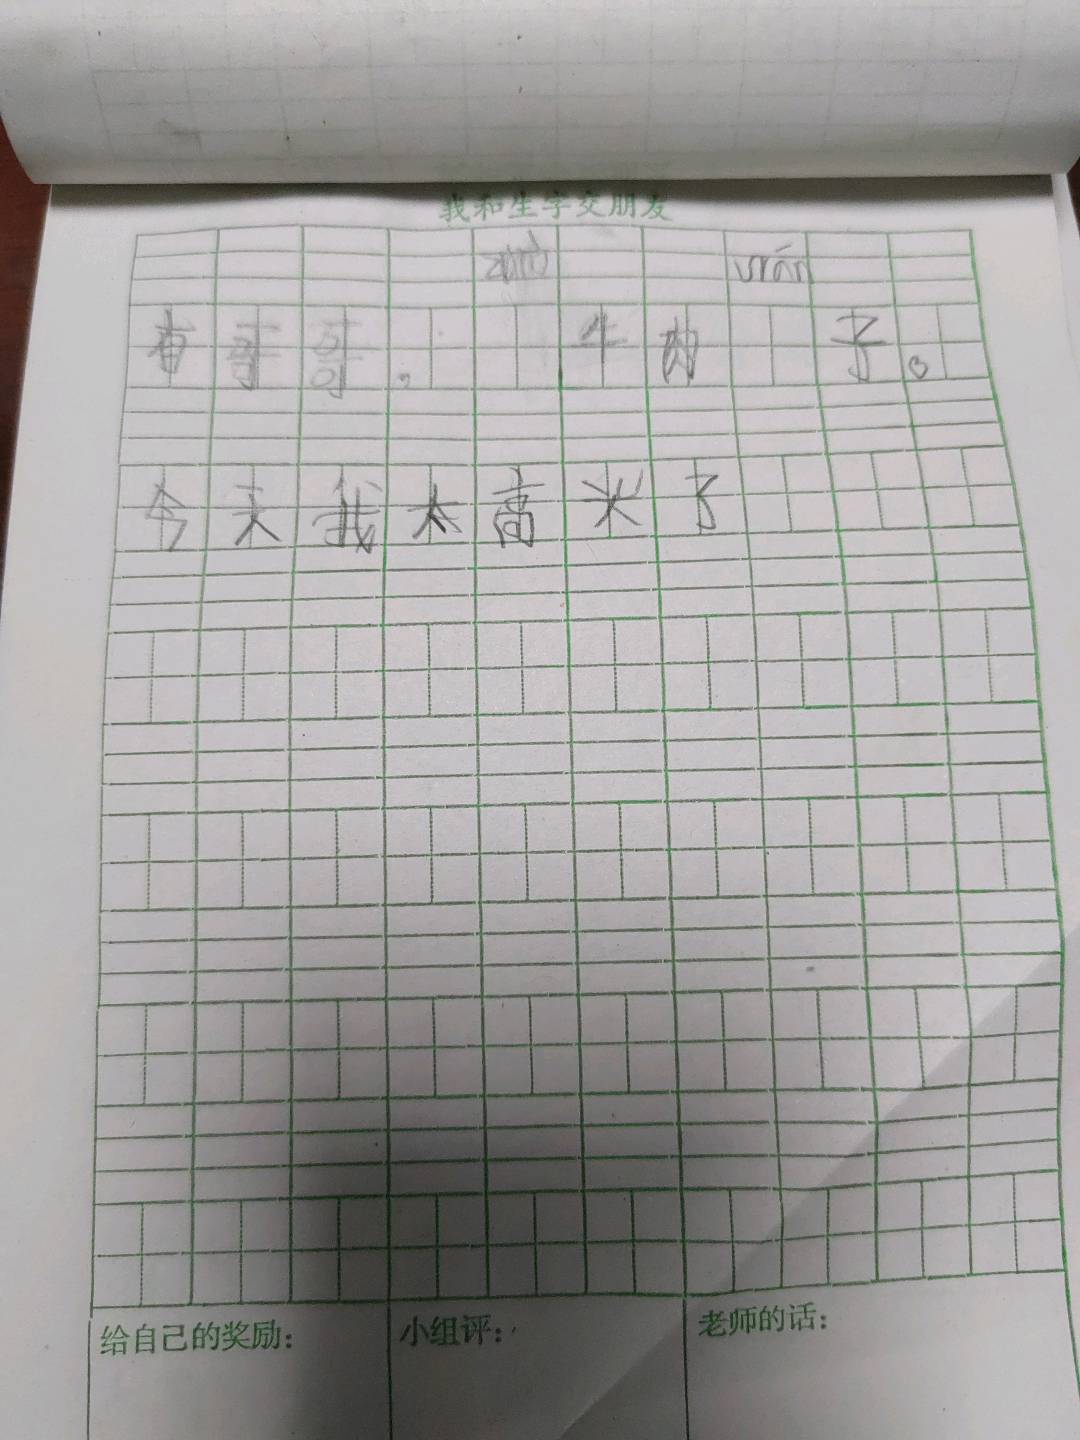 我和生字交朋友
有哥哥，牛肉子。
今天我太高兴了
给自己的奖励：
小组评：
老师的话：